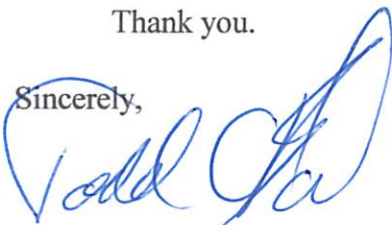 Thank you.
Sincerely,
Todd